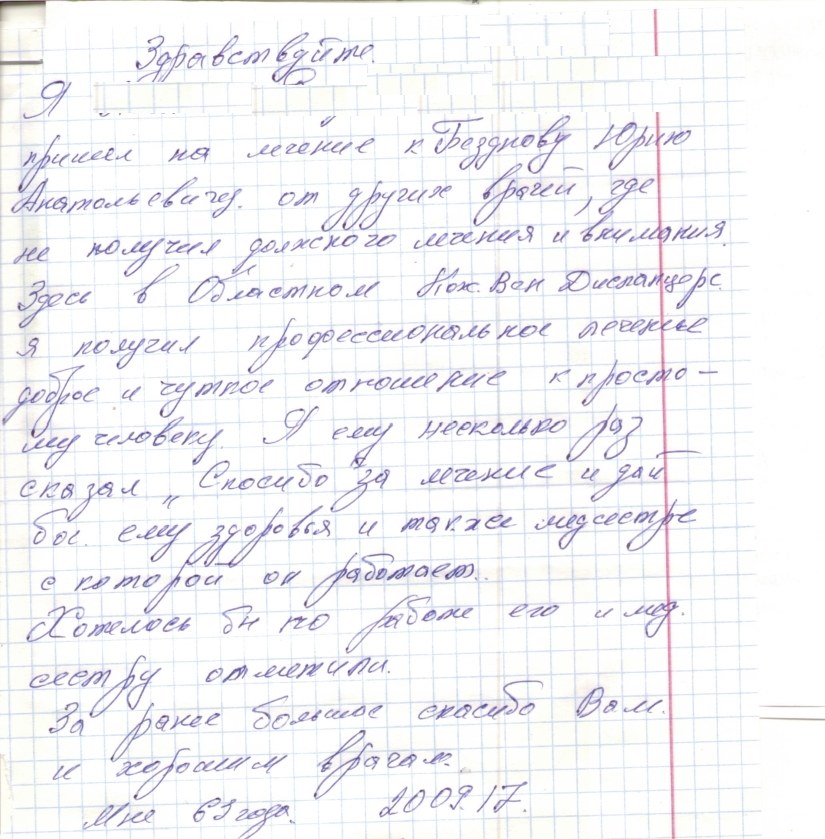 Здравствуйте.
Я
пришел на лечение к Безднову Юрию
Анатольевичу. от других врачей, где
не получил должного лечения и внимания.
Здесь в Областном Кож. Вен Диспанцере.
я получил профессиональное леченье
доброе и чуткое отношение к просто-
му человеку. Я ему несколько раз
сказал „Спосибо" за лечение и дай
бог. ему здоровья и также медсестре
с которой он работает.
Хотелось бы по работе его и мед.
сестру отметили.
За ранее большое спасибо Вам.
и хорошим врачам.
Мне 63 года. 20.09.17.